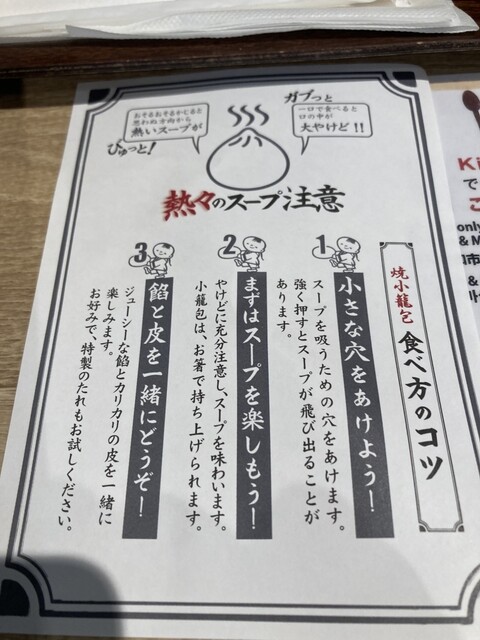 おそるおそるかじると
思わぬ方向から
熱いスープが
ぴゅっと!
ガブっと
一口で食べると
口の中が
大やけど!!
熱々のスープ注意
焼小龍包 食べ方のコツ
1
小さな穴をあけよう!
スープを吸うための穴をあけます。
強く押すとスープが飛び出ることが
あります。
2
まずはスープを楽しもう!
やけどに充分注意し、スープを味わいます。
小龍包は、お箸で持ち上げられます。
3
餡と皮を一緒にどうぞ!
ジューシーな餡とカリカリの皮を一緒に
楽しみます。
お好みで、特製のたれもお試しください。
Ki
で
only
& M